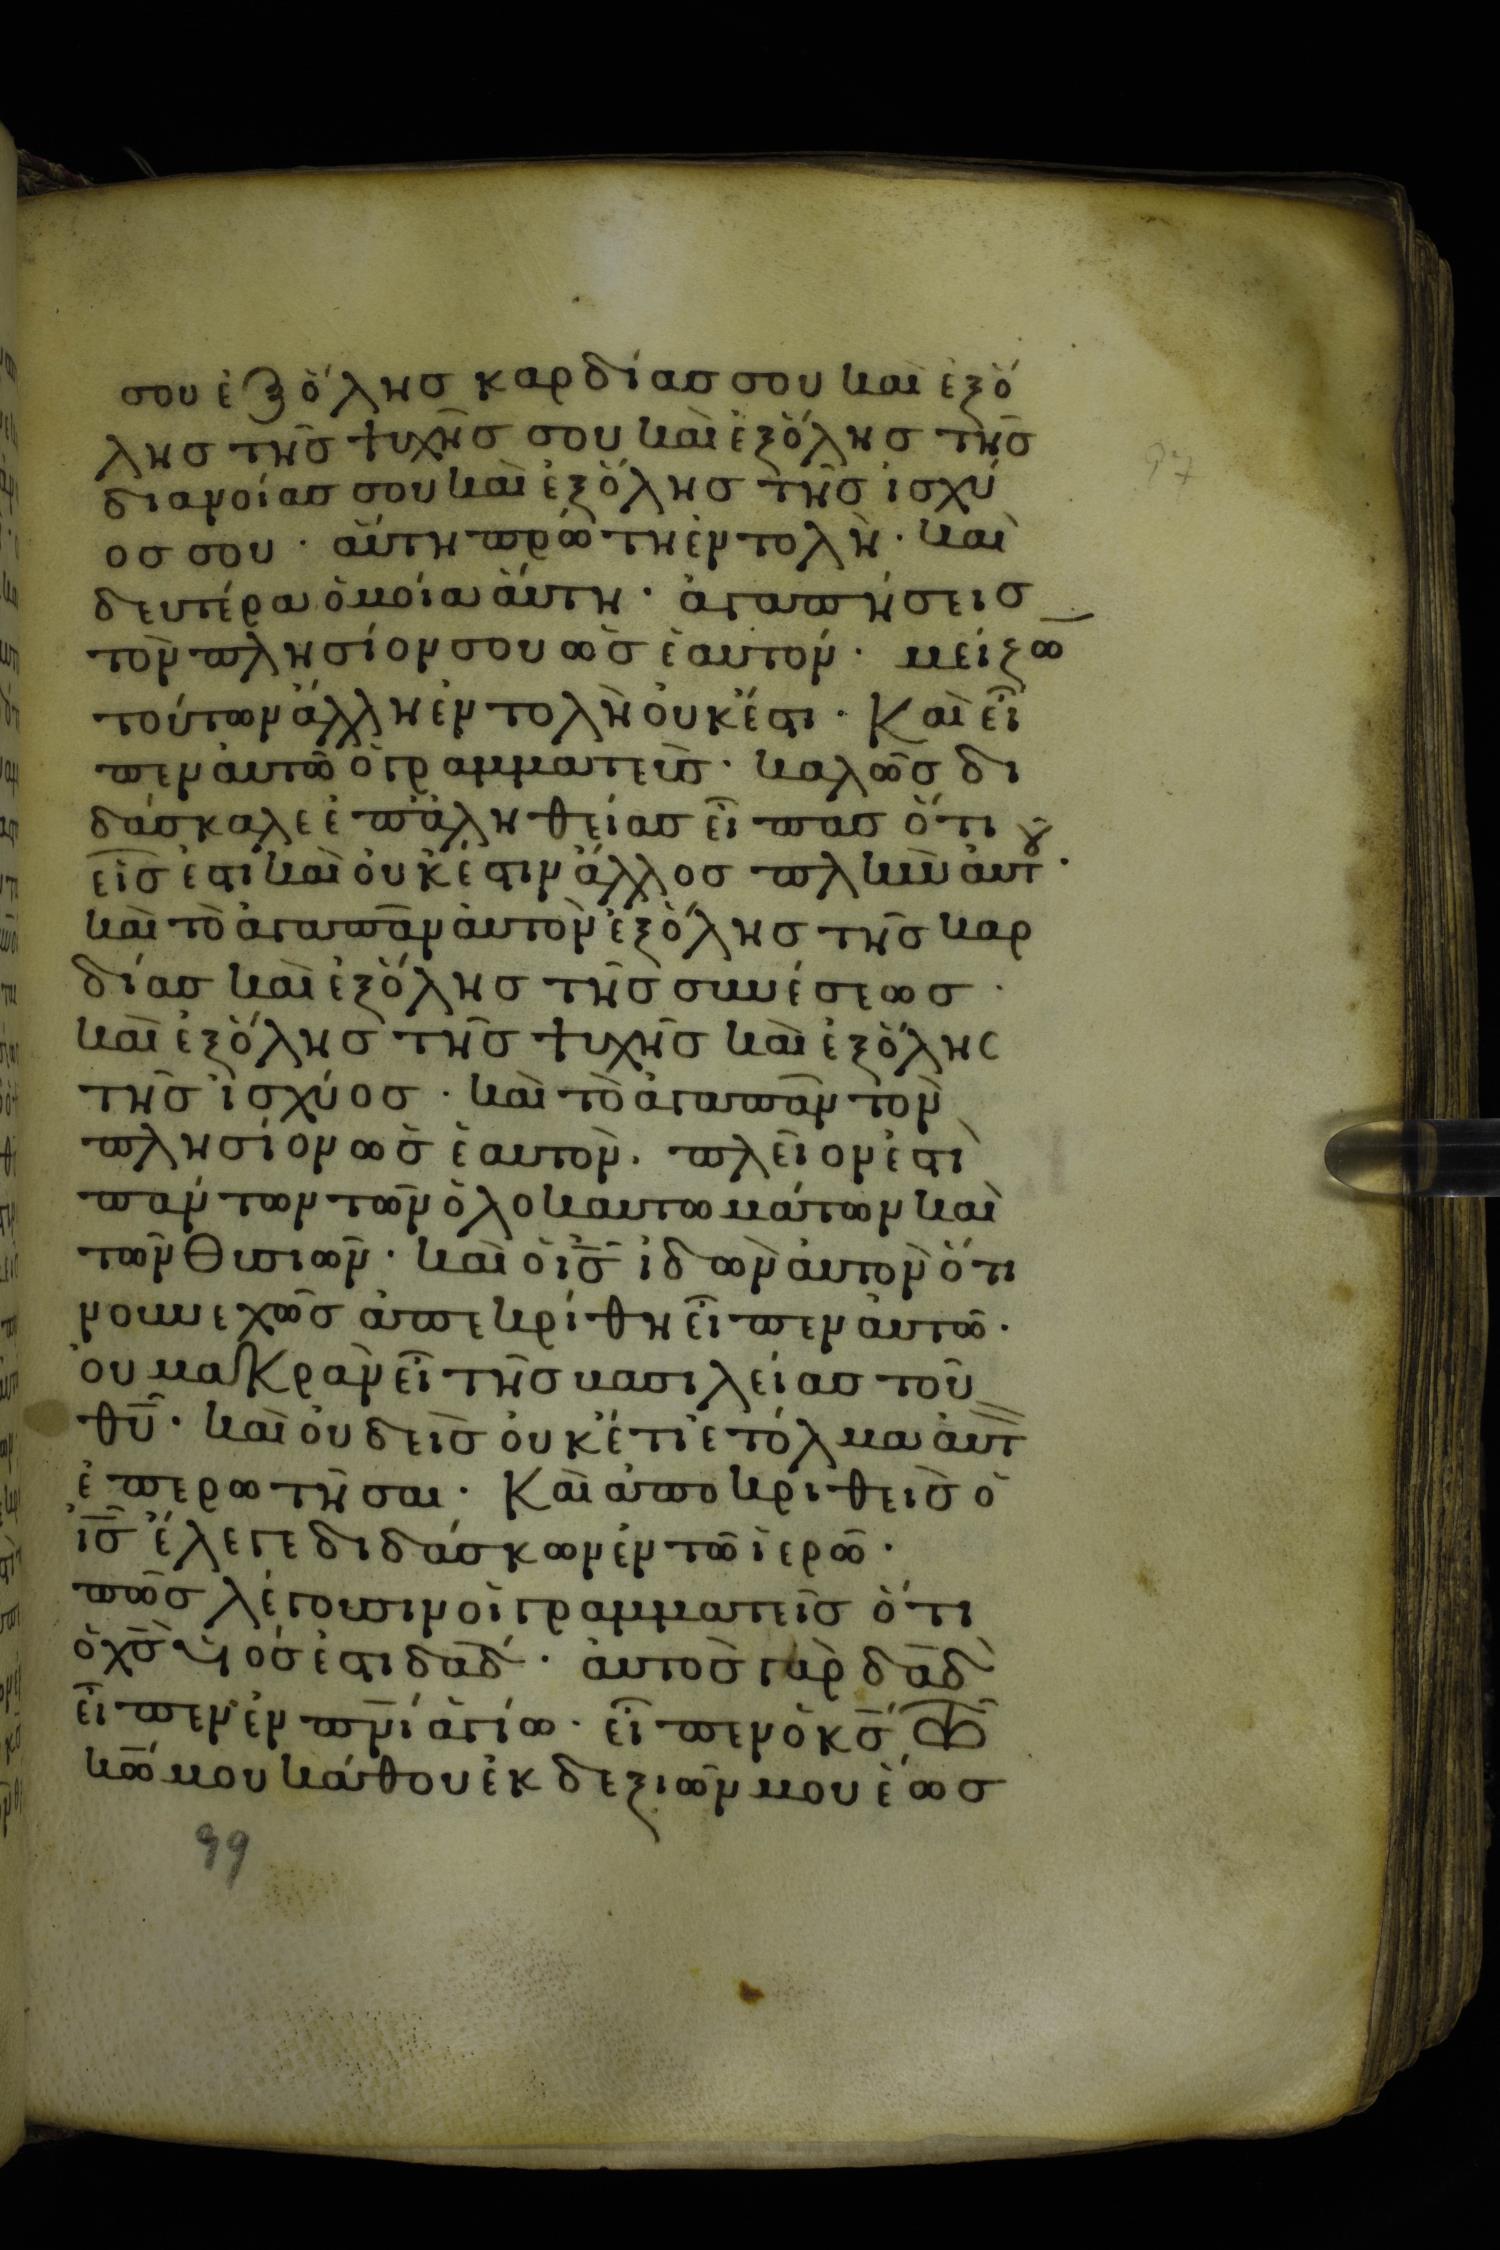 σου ἐξ ὅλης καρδίας σου καὶ ἐξ ὅ
λης τῆς ψυχῆς σου καὶ ἐξ ὅλης τῆς
διανοίας σου καὶ ἐξ ὅλης τῆς ἰσχύ
ος σου · αὕτη πρώτη ἐντολὴ · καὶ
δευτέρα ὁμοία αὕτη · ἀγαπήσεις
τὸν πλησίον σου ὡς ἑαυτόν · μείζω̅
τούτων ἄλλη ἐντολὴ οὐκ ἔστι · Καὶ εἶ
πεν αὐτῶ ὁ γραμματεὺς · καλῶς δι
δάσκαλε ἐπ' ἀληθείας εἶπας ὅτι
εἷς ἐστι καὶ οὐκ ἔστιν ἄλλος πλὴν αὐτοῦ ·
καὶ τὸ ἀγαπᾶν αὐτὸν ἐξ ὅλης τῆς καρ
δίας καὶ ἐξ ὅλης τῆς συνέσεως ·
καὶ ἐξ ὅλης τῆς ψυχῆς καὶ ἐξ ὅλης
τῆς ἰσχύος · καὶ τὸ ἀγαπᾶν τὸν
πλησίον ὡς ἑαυτὸν · πλεῖον ἐστὶ
πάντων τῶν ὁλοκαυτωμάτων καὶ
τῶν θυσιῶν · καὶ ὁ ι̅ς̅ ἰδὼν αὐτὸν ὅτι
νουνεχῶς ἀπεκρίθη εἶπεν αὐτῶ ·
οὐ μακρὰν εἶ τῆς βασιλείας τοῦ
θ̅υ̅ · καὶ οὐδεὶς οὐκέτι ἐτόλμα αὐτ̅
ἐπερωτῆσαι · Καὶ ἀποκριθεὶς ὁ
ι̅ς̅ ἔλεγε διδάσκων ἐν τῶ ἱερῶ ·
πῶς λέγουσιν οἱ γραμματεῖς ὅτι
ὁ χ̅ς̅ υἱός ἐστι δα̅δ · αὐτὸς γὰρ δα̅δ
εἶπεν ἐν π̅ν̅ι ἁγίω · εἶπεν ὁ κ̅ς̅ τῶ
κ̅ω̅ μου κάθου ἐκ δεξιῶν μου ἕως
99
97